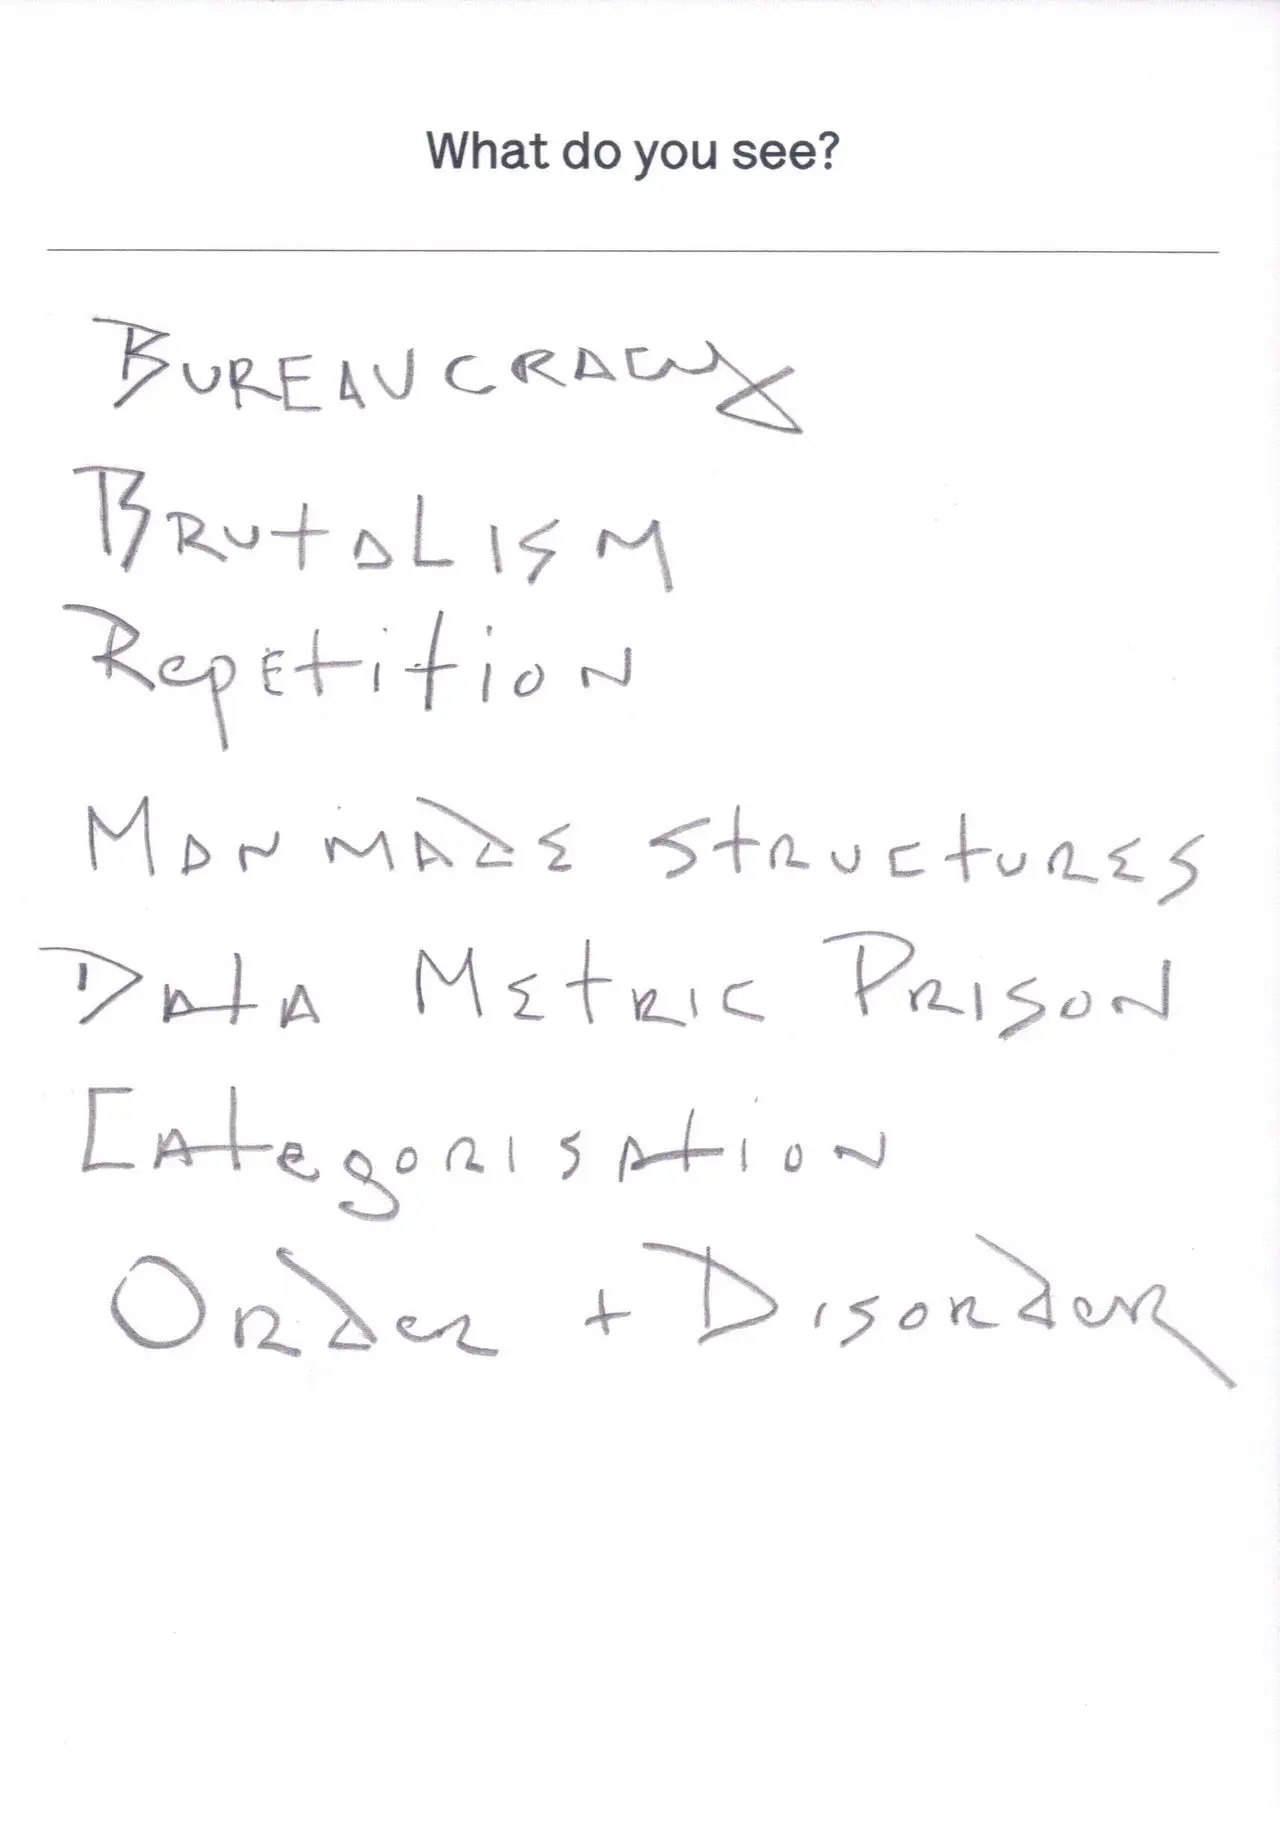 What do you see?
BUREAUCRACY
BRUTALISM
Repetition
MANMADE STRUCTURES
DATA METRIC PRISON
CATegORISATION
Order + Disorder